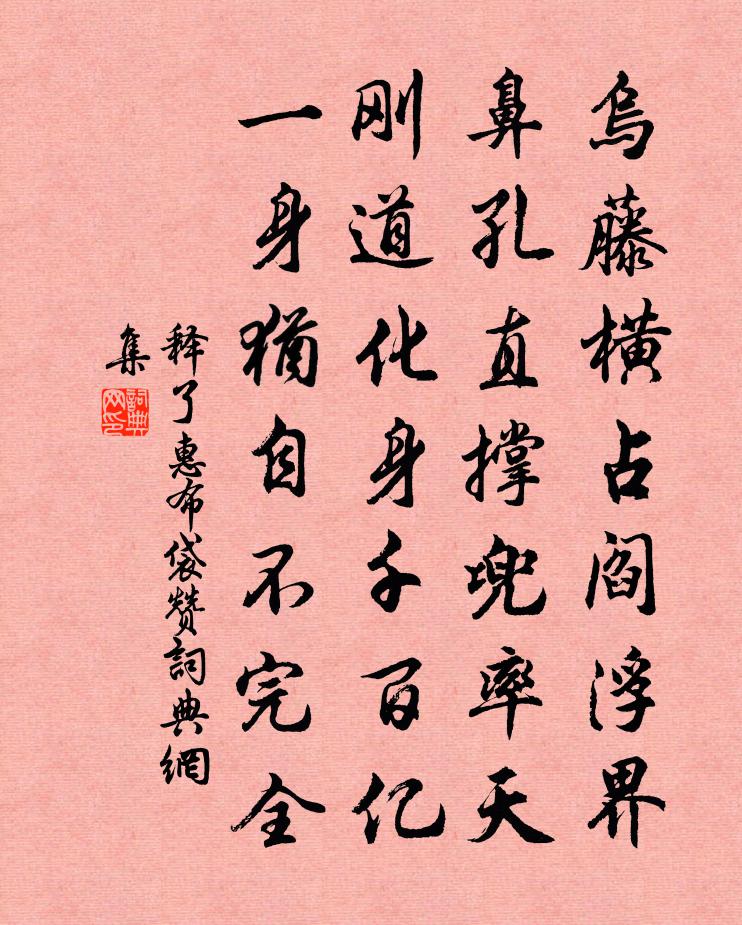 烏藤橫占閻浮界
鼻孔直撑兜率天
刚道化身千百亿
一身猶自不完全
释了惠布袋赞詞典網
集
詞典
网印